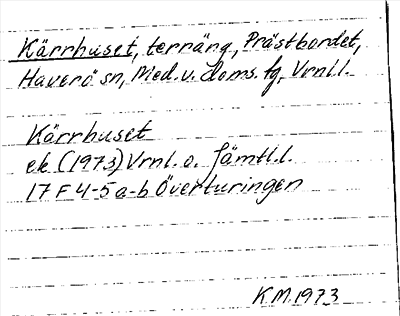 Kärrhuset, terräng, Prästbordet,
Haverö sn, Med. v. doms. tg, Vrnl.l.
Kärrhuset
ek (1973) Vrnl. o. Jämtl.l.
17 F 4-5 a-b Överturingen
K.M. 1973